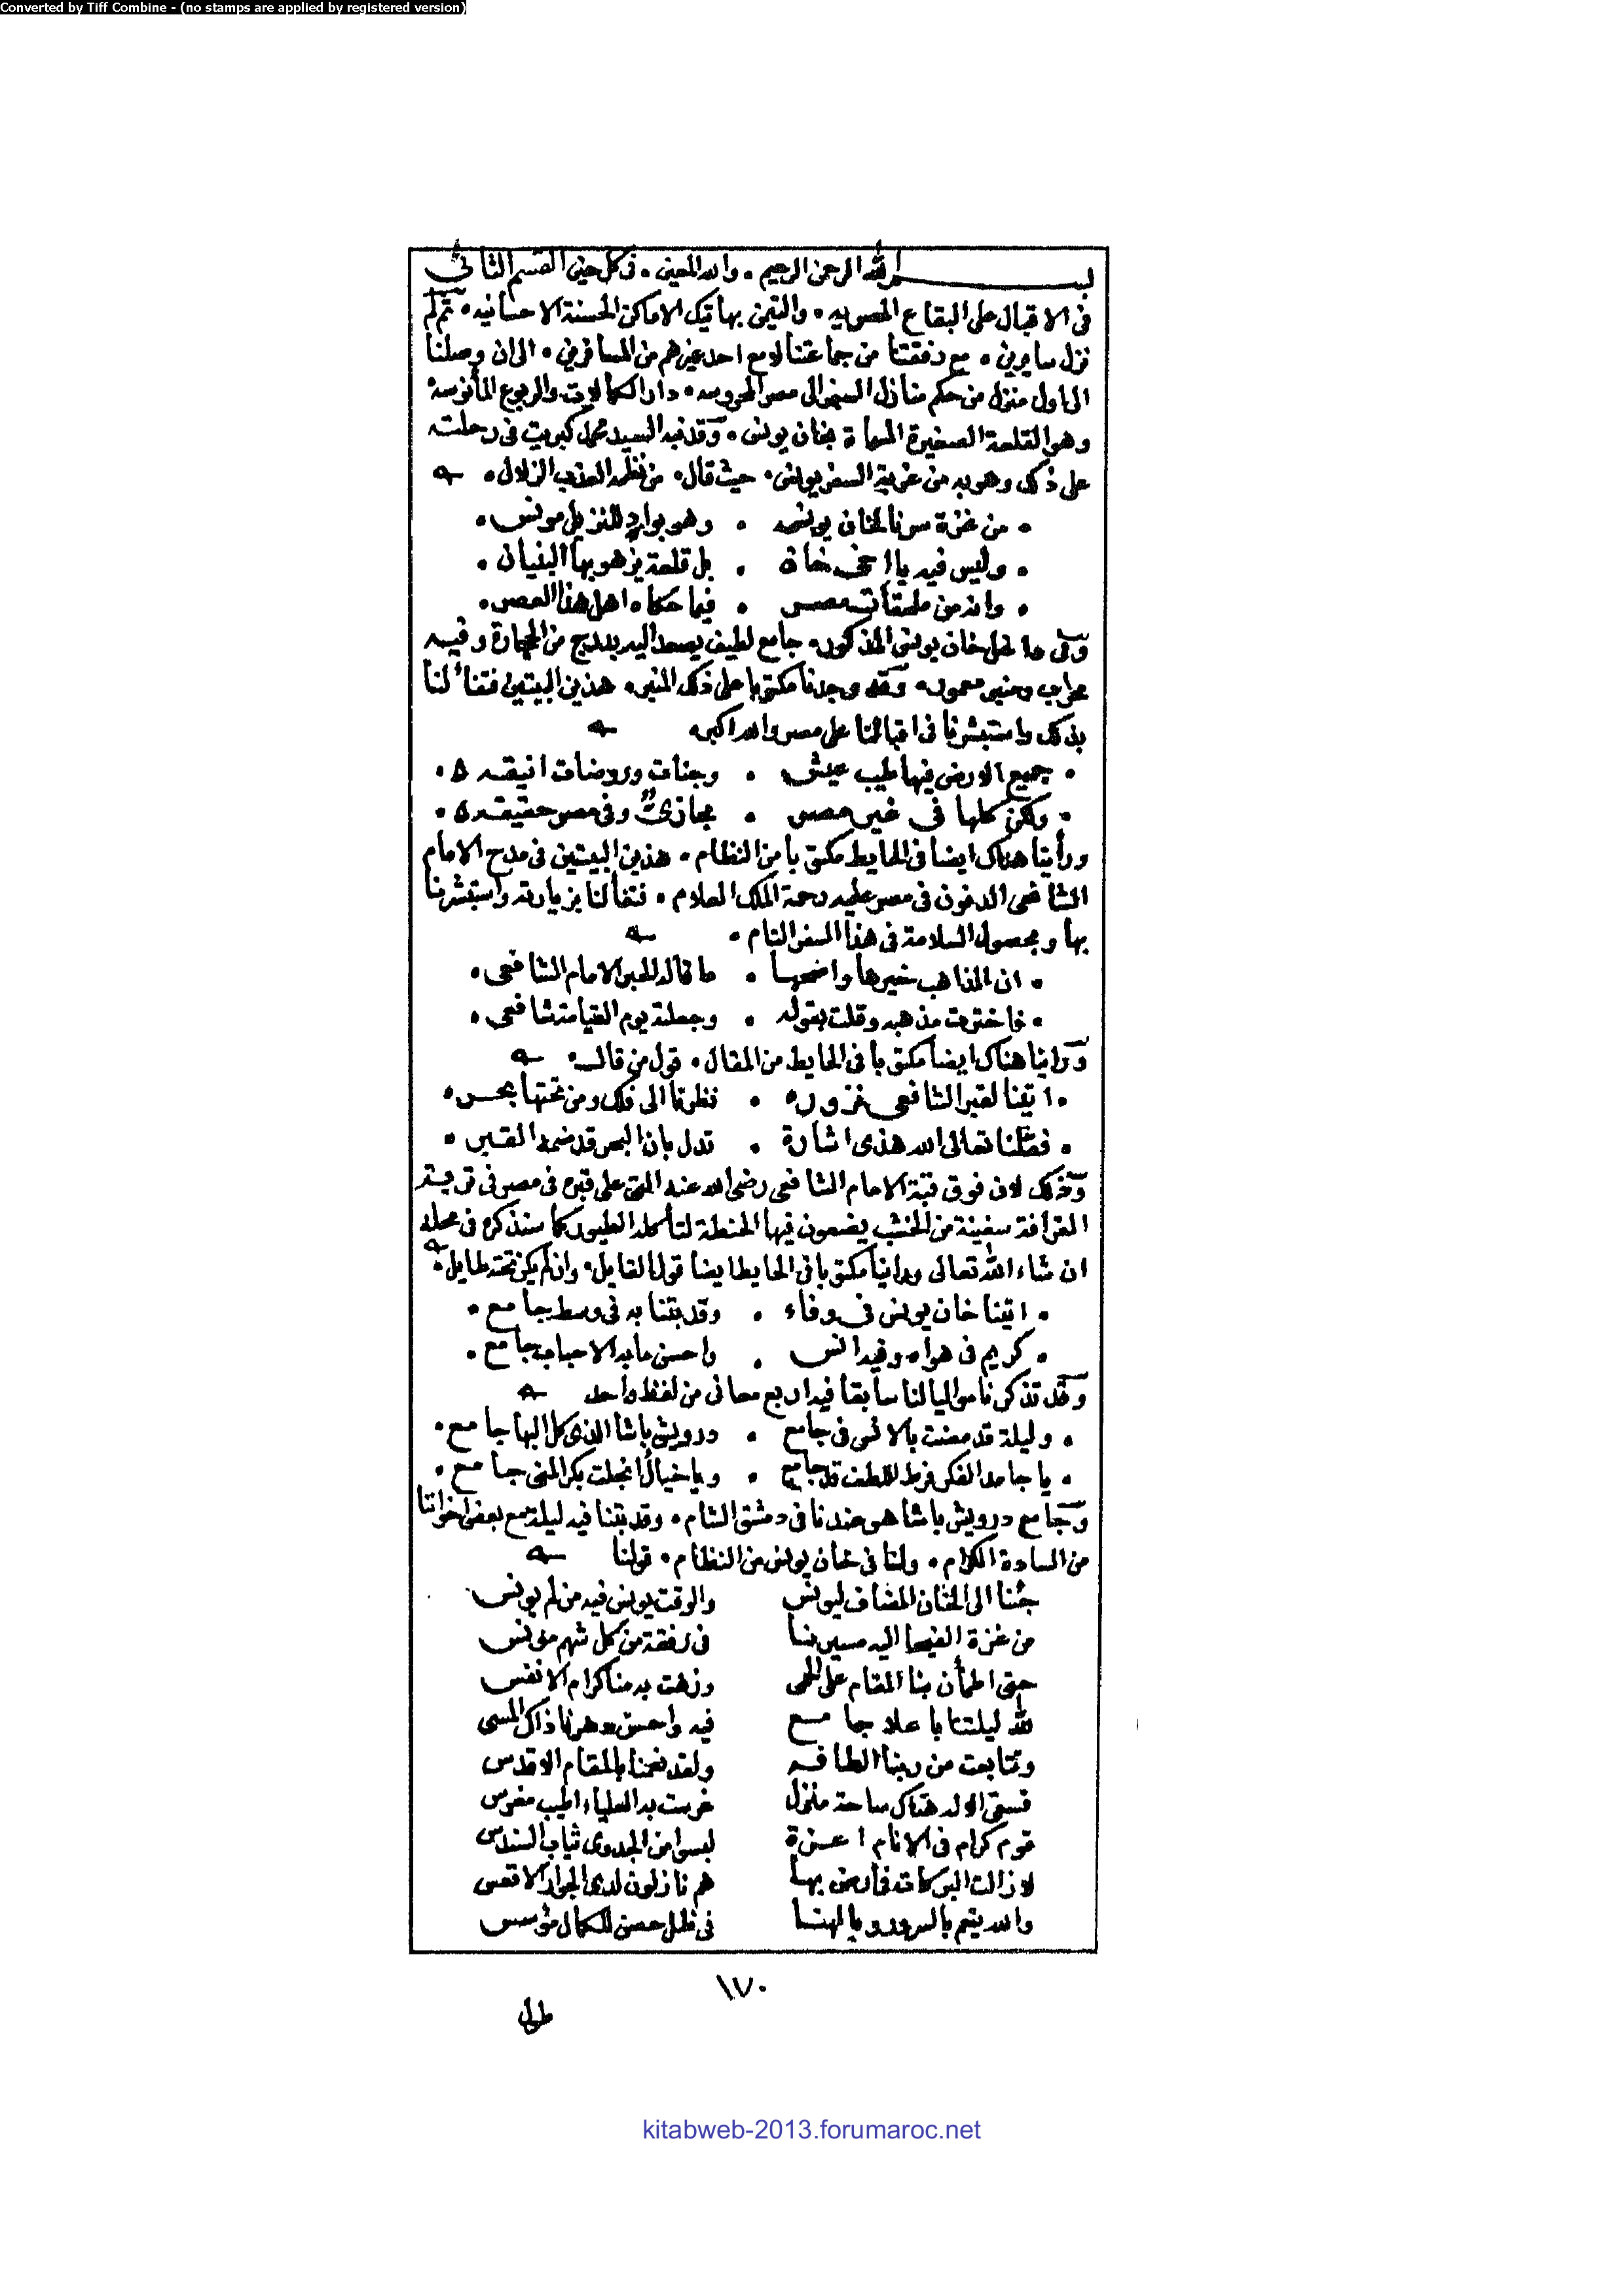 Converted by Tiff Combine - (no stamps are applied by registered version)
بسم الله الرحمن الرحيم • والله المعين • في كل حين القسم الثاني
في الاقبال على البقاع المصريه • والتيمن بهاتيك الاماكن الحسنة الاحسانيه • ثم لم
نزل سايرين • مع رفقتنا من جماعتنا لا مع احد غيرهم من المسافرين • الى ان وصلنا
الى اول منزل من حكم منازل السفر الى مصر المحروسه • دار الكمالات والربوع المأنوسه
وهو القلعة الصغيرة المسماة بخان يونس • وقد نبه السيد محمد كبريت في رحلته
على ذكك وهو به من غربة السفر يونس • حيث قال • من نظمه العذب الزلال •
• من غزة سرنا لخان يونس • وهو بواد للنزيل مونس •
• وليس فيه يا اخي خان • بل قلعة يزهو بها البنيان •
• وانه من ملحقات مصر • فيما حكاه اهل هذا العصر •
وفي داخل خان يونس المذكور • جامع لطيف يصعد اليه بدرج من الحجارة وفيه
محراب ومنبر معمور • وقد وجدنا مكتوبا على ذلك المنبر • هذين البيتين فتفاءلنا
بذلك واستبشرنا في اقبالنا على مصر والله اكبر •
• جميع الارض فيها طيب عيش • وجنات وروضات انيقه •
• ولكن كلها في غير مصر • مجازي وفي مصر حقيقه •
ورأينا هناك ايضا في الحايط مكتوبا من النظام • هذين البيتين في مدح الامام
الشافعي المدفون في مصر عليه رحمة الملك العلام • فتفاءلنا بزيارته واستبشرنا
بها وبحصول السلامة في هذا السفر التام •
• ان المذاهب خيرها واضحها • ما قاله الحبر الامام الشافعي •
• فاخترت مذهبه وقلت بقوله • وجعلته يوم القيامة شافعي •
ورأينا هناك ايضا مكتوبا في الحايط من المقال • قول من قال •
• اتينا لقبر الشافعي نزوره • نظرنا الى فلك ومن تحتها بحر •
• فقلنا تعالى الله هذي اشارة • تدل بان البحر قد ضمه القبر •
وذلك لان فوق قبة الامام الشافعي رضي الله عنه التي على قبره في مصر في تربة
القرافة سفينة من الخشب يضعون فيها الحنطة لتأكله الطيور كما سنذكره في محله
ان شاء الله تعالى ورأينا مكتوبا في الحايط ايضا قول القايل • وان لم يكن تحته طايل •
• اتينا خان يونس في وفاء • وقد بتنا به في وسط جامع •
• كريم في هواه وفيه انس • واحسن ما به الاحباب جامع •
وقد تذكرنا مواليا لنا سابقا فيه اربع معاني من لفظ واحد
• وليلة قد مضت بالانس في جامع • درويش باشا الذي كل البها جامع •
• يا جامد الفكر فرط اللطف قد جامع • ويا خيال انجلت بكر المنى جامع •
وجامع درويش باشا هو عندنا في دمشق الشام • وقد بتنا فيه ليلة مع بعض اخواننا
من السادة الكرام • ولنا في خان يونس من النظام • قولنا
جئنا الى الخان المضاف ليونس والوقت يونس فيه من لم يونس
من غزة الفيحا اليه مسيرنا في رفقة من كل شهم مونس
حتى اطمأن بنا المقام على الحمى وزهت به منا كرام الانفس
لله ليلتنا باعلا جامع فيه واحسن دهرنا ذاك المسي
وتتابعت من ربنا الطافه ولقد نعمنا بالمقام الاقدس
فسقى الاله هناك ساحة منزل غرست به العلياء اطيب مغرس
قوم كرام في الانام اعزة لبسوا من الجدوى ثياب السندس
لا زالت البركات في ارض بها هم نازلون لدى الجوار الاقعس
والله يتم بالسرور وبالهنا في ظل حصن للكمال مؤسس
١٧٠
kitabweb-2013.forumaroc.net